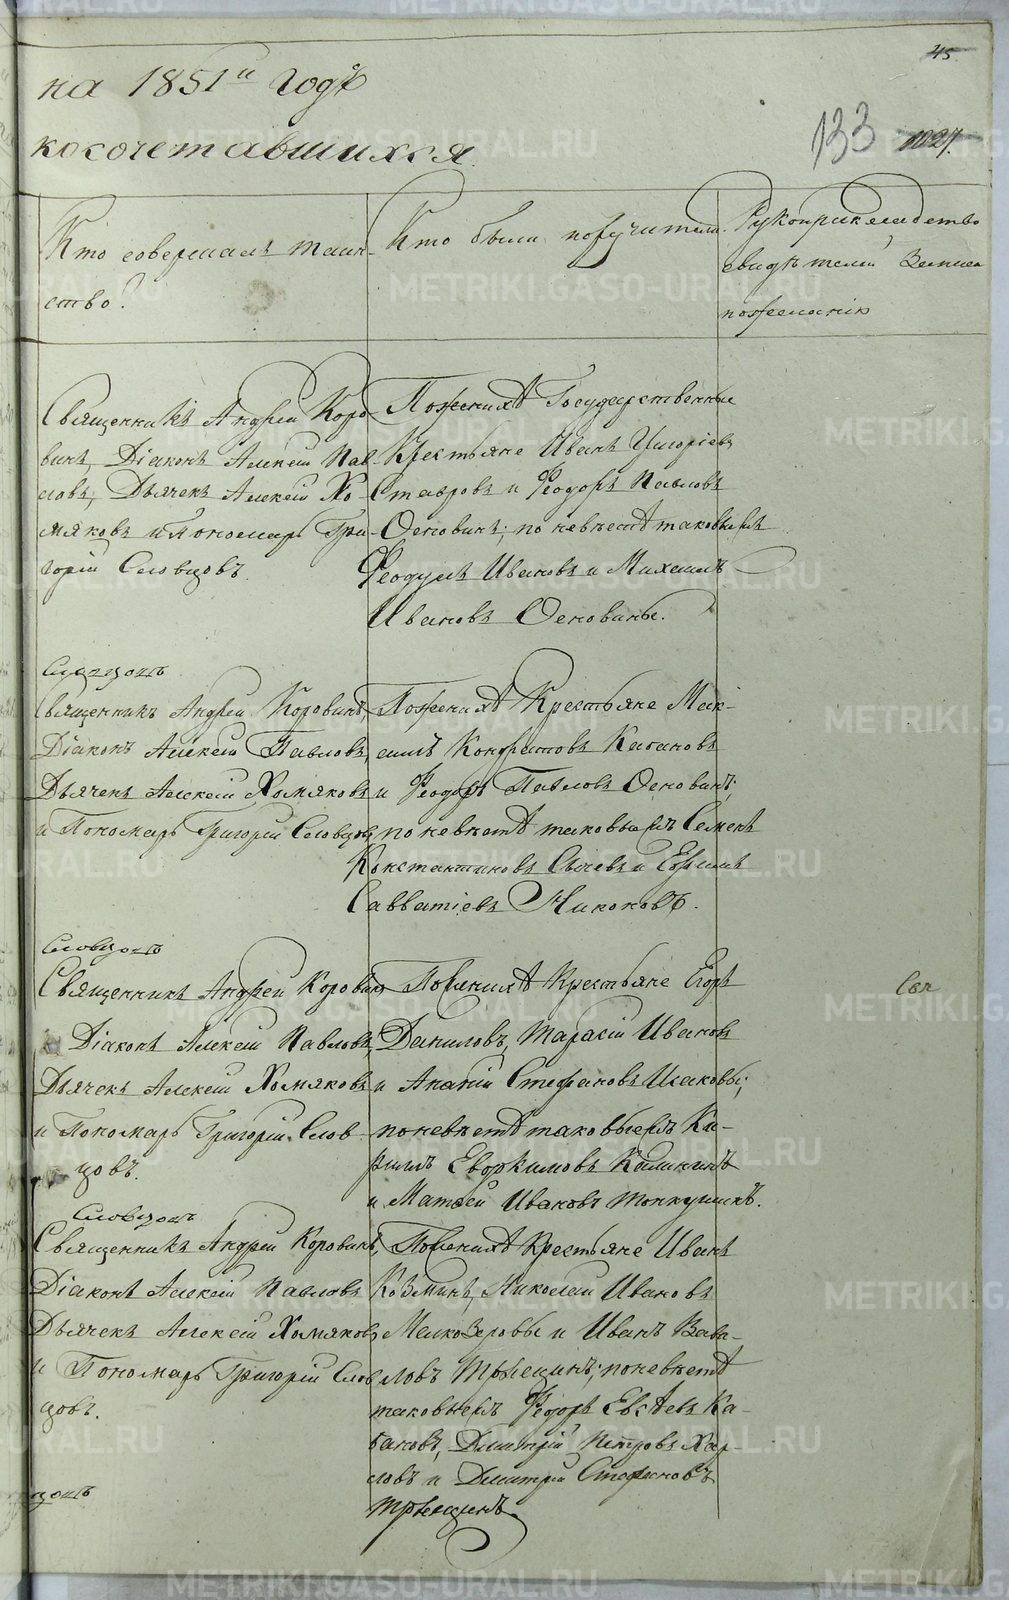 45
на 1851й Годъ
133 1027.
косочетавшихся.
Кто совершалъ таин-
ство?
Кто были поручители
Рукоприкладство
свидѣтелей Записи
по желанію
Священникъ Андрей Коро-
винъ, Діаконъ Алексей Пав-
ловъ, Дьячекъ Алексей Хо-
мяковъ и Пономарь Гри-
горій Словцовъ.
По женихѣ Государственные
Крестьяне Иванъ Григорiевъ
Ставровъ и Ѳеодоръ Павловъ
Осковинъ; по невѣстѣ таковыежъ
Ѳеодулъ Ивановъ и Михаилъ
Ивановъ Осковины.
Священникъ Андрей Коровинъ,
Діаконъ Алексей Павловъ,
Дьячекъ Алексей Хомяковъ
и Пономарь Григорій Словцовъ
По женихѣ Крестьяне Мак-
симъ Кондратовъ Кабановъ
и Ѳеодоръ Павловъ Осковинъ;
по невѣстѣ таковыежъ Семенъ
Константиновъ Сычевъ и Ефимъ
Савватіевъ Никоновъ.
Словцовъ
Священникъ Андрей Коровинъ
Діаконъ Алексій Павловъ,
Дьячекъ Алексей Хомяковъ
и Пономарь Григорій Слов-
цовъ.
По женихѣ Крестьяне Егоръ
Даниловъ, Тарасій Ивановъ
и Ананій Стефановъ Исаковы;
по невѣстѣ таковыежъ Ки-
риллъ Евдокимовъ Калининъ
и Матвей Ивановъ Тонкушинъ.
Свя
Словцовъ
Священникъ Андрей Коровинъ,
Діаконъ Алексій Павловъ
Дьячекъ Алексей Хомяковъ
и Пономарь Григорій Слов
цовъ.
По женихѣ Крестьяне Иванъ
Козминъ, Николай Ивановъ
Мелкозеровы и Иванъ Вави-
ловъ Трьецинъ; по невѣстѣ
таковыежъ Ѳеодоръ Евсѣевъ Ка-
баковъ, Дмитрій Петровъ Хар-
ловъ и Дмитрій Стефановъ
Трьецинъ.
METRIKI.GASO-URAL.RU